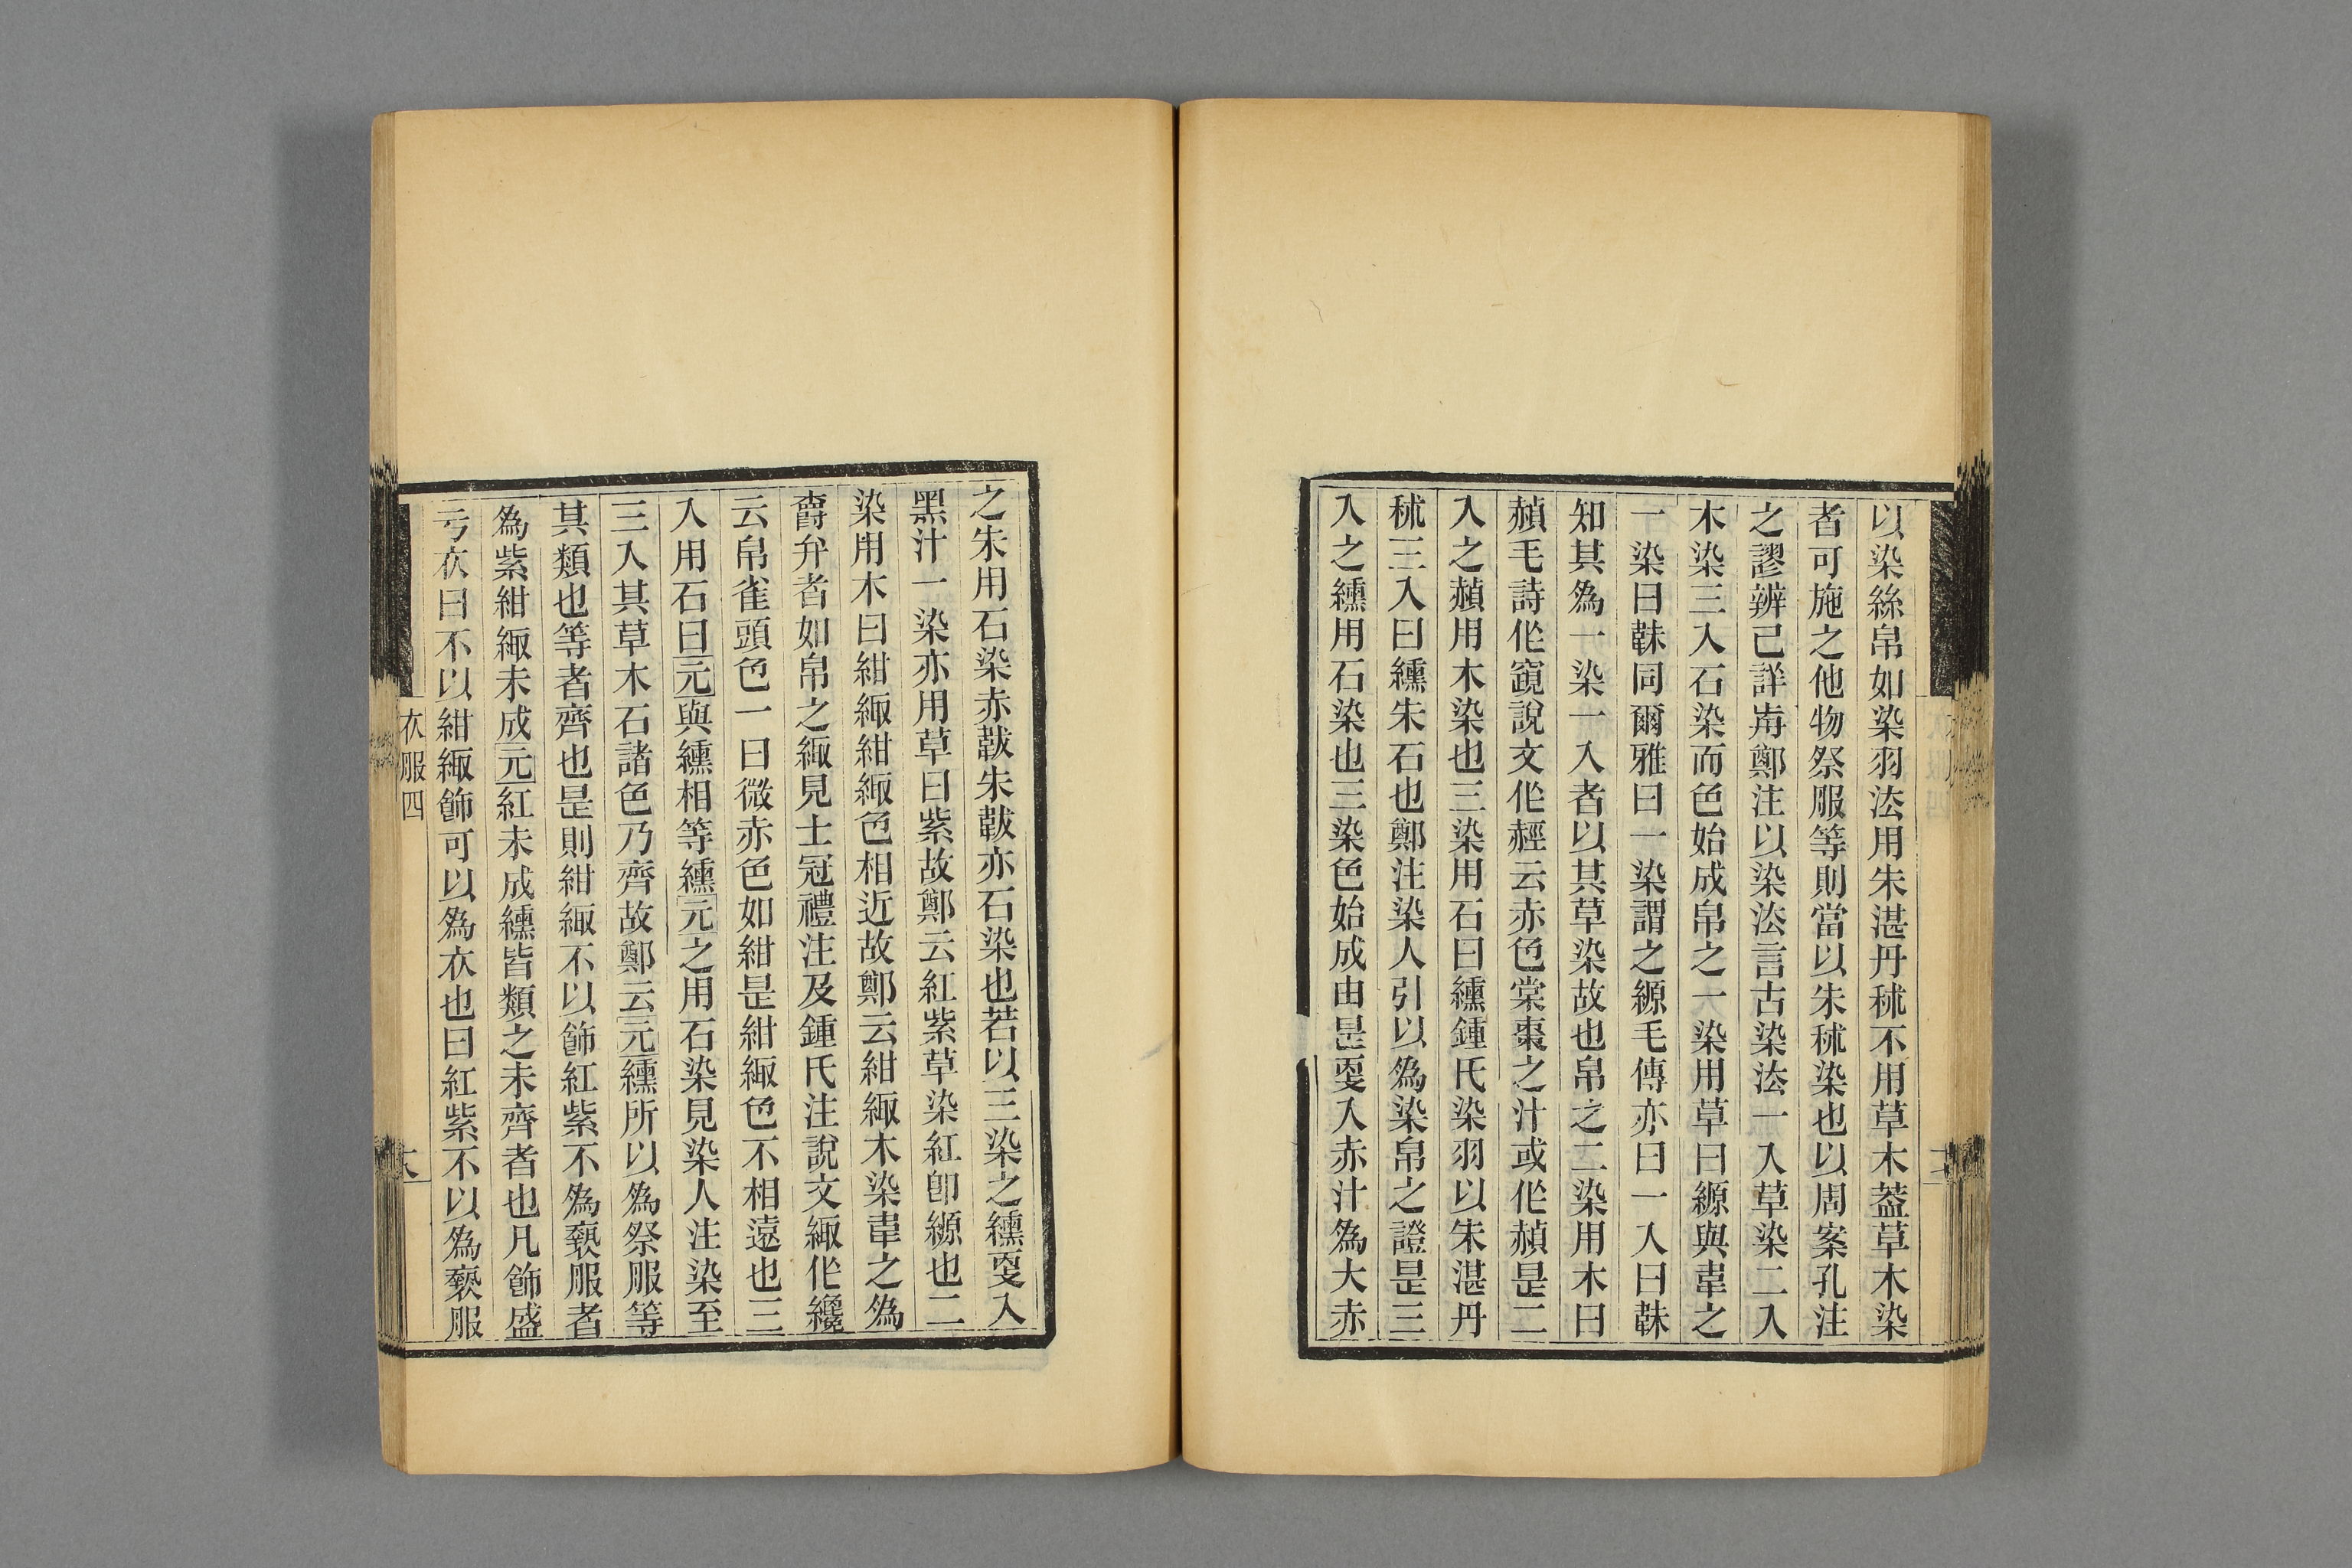 以染絲帛如染羽法用朱湛丹秫不用草木葢草木染
者可施之他物祭服等則當以朱秫染也以周案孔注
之謬辨已詳歬鄭注以染法言古染法一入草染二入
木染三入石染而色始成帛之一染用草曰縓與韋之
一染曰韎同爾雅曰一染謂之縓毛傳亦曰一入曰韎
知其爲一染一入者以其草染故也帛之二染用木曰
赬毛詩作竀說文作䞓云赤色棠棗之汁或作赬是二
入之赬用木染也三染用石曰纁鍾氏染羽以朱湛丹
秫三入曰纁朱石也鄭注染人引以爲染帛之證是三
入之纁用石染也三染色始成由是㪅入赤汁爲大赤
之朱用石染赤韍朱韍亦石染也若以三染之纁㪅入
黑汁一染亦用草曰紫故鄭云紅紫草染紅卽縓也二
染用木曰紺緅紺緅色相近故鄭云紺緅木染韋之爲
爵弁者如帛之緅見士冠禮注及鍾氏注說文緅作纔
云帛雀頭色一曰微赤色如紺是紺緅色不相遠也三
入用石曰元與纁相等纁元之用石染見染人注染至
三入其草木石諸色乃齊故鄭云元纁所以爲祭服等
其類也等者齊也是則紺緅不以飾紅紫不爲褻服者
爲紫紺緅未成元紅未成纁皆類之未齊者也凡飾盛
亏衣曰不以紺緅飾可以爲衣也曰紅紫不以爲褻服
衣服四